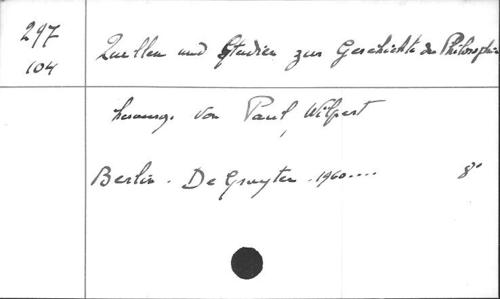 297
104
Quellen und Studien zur Geschichte der Philosophie
herausg. von Paul Wilpert
Berlin . De Gruyter . 1960.... 8°